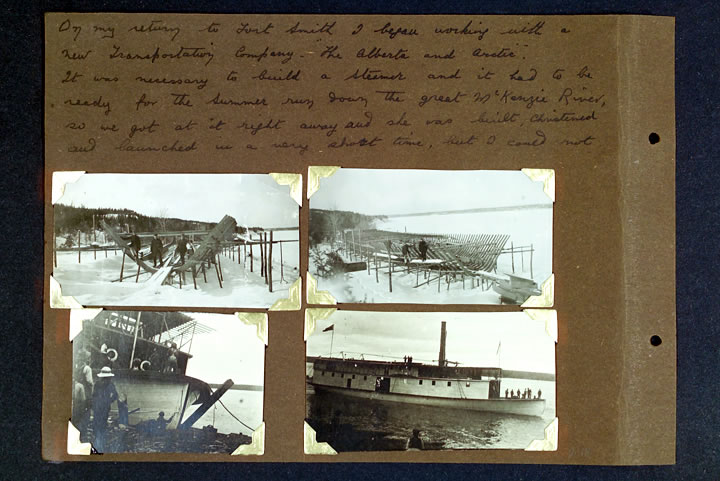 On my return to Fort Smith I began working with a
new Transportation Company - "The Alberta and Arctic".
It was necessary to build a steamer and it had to be
ready for the summer run down the great McKenzie River,
so we got at it right away and she was built, Christened
and launched in a very short time, but I could not